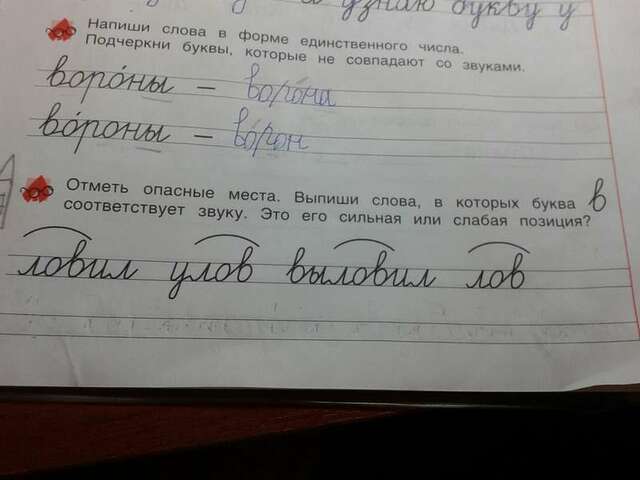 а узнаю букву у
Напиши слова в форме единственного числа.
Подчеркни буквы, которые не совпадают со звуками.
воро́ны – воро́на
во́роны – во́рон
Отметь опасные места. Выпиши слова, в которых буква в
соответствует звуку. Это его сильная или слабая позиция?
ловил улов выловил лов